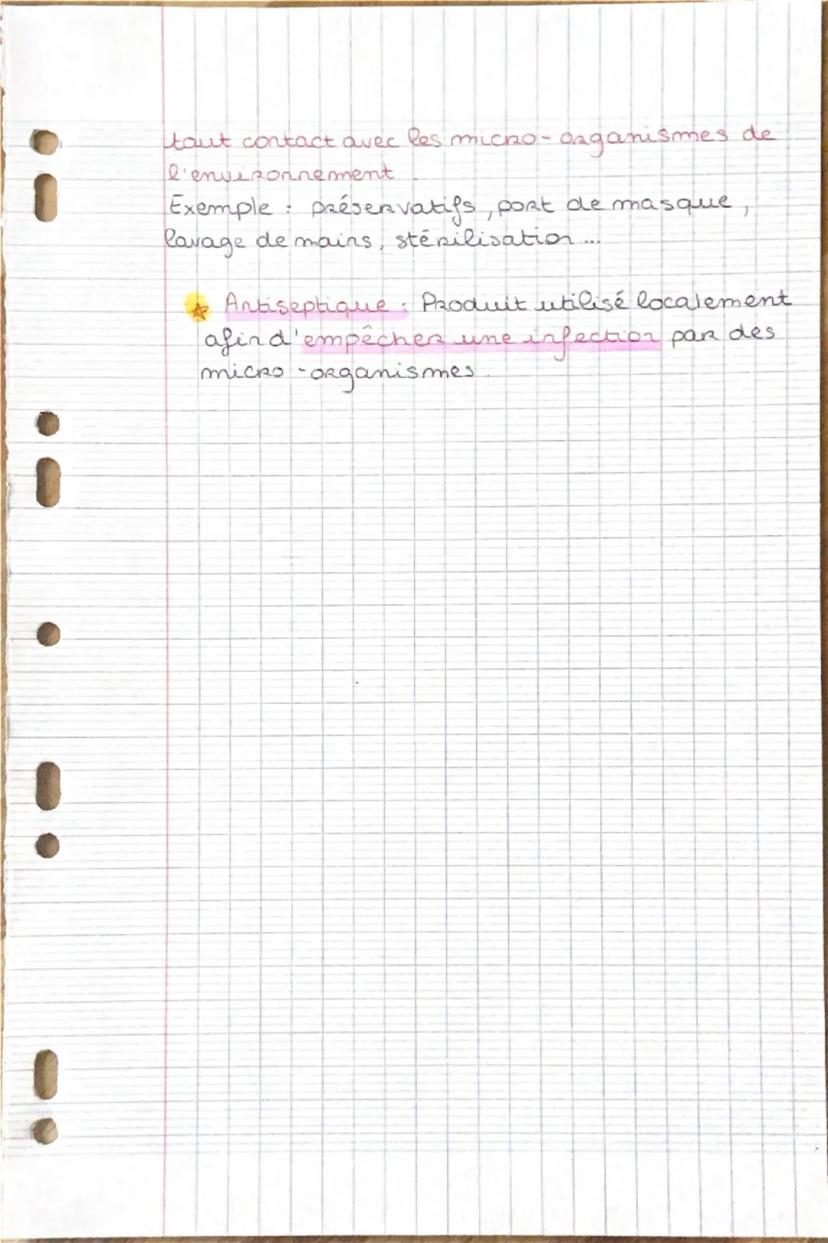 tout contact avec les micro-organismes de
l'environnement.
Exemple : préservatifs, port de masque,
lavage de mains, stérilisation...
Antiseptique : Produit utilisé localement
afin d'empêcher une infection par des
micro-organismes.